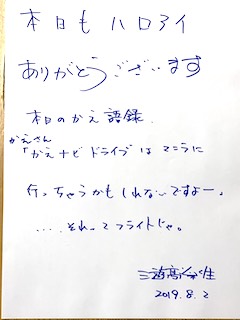 本日もハロアイ
ありがとうございます
本日のかえ語録
かえさん
「かえナビ ドライブはマニラに
行っちゃうかもしれないですよー。
.....それってフライトじゃ。
2019.8.2